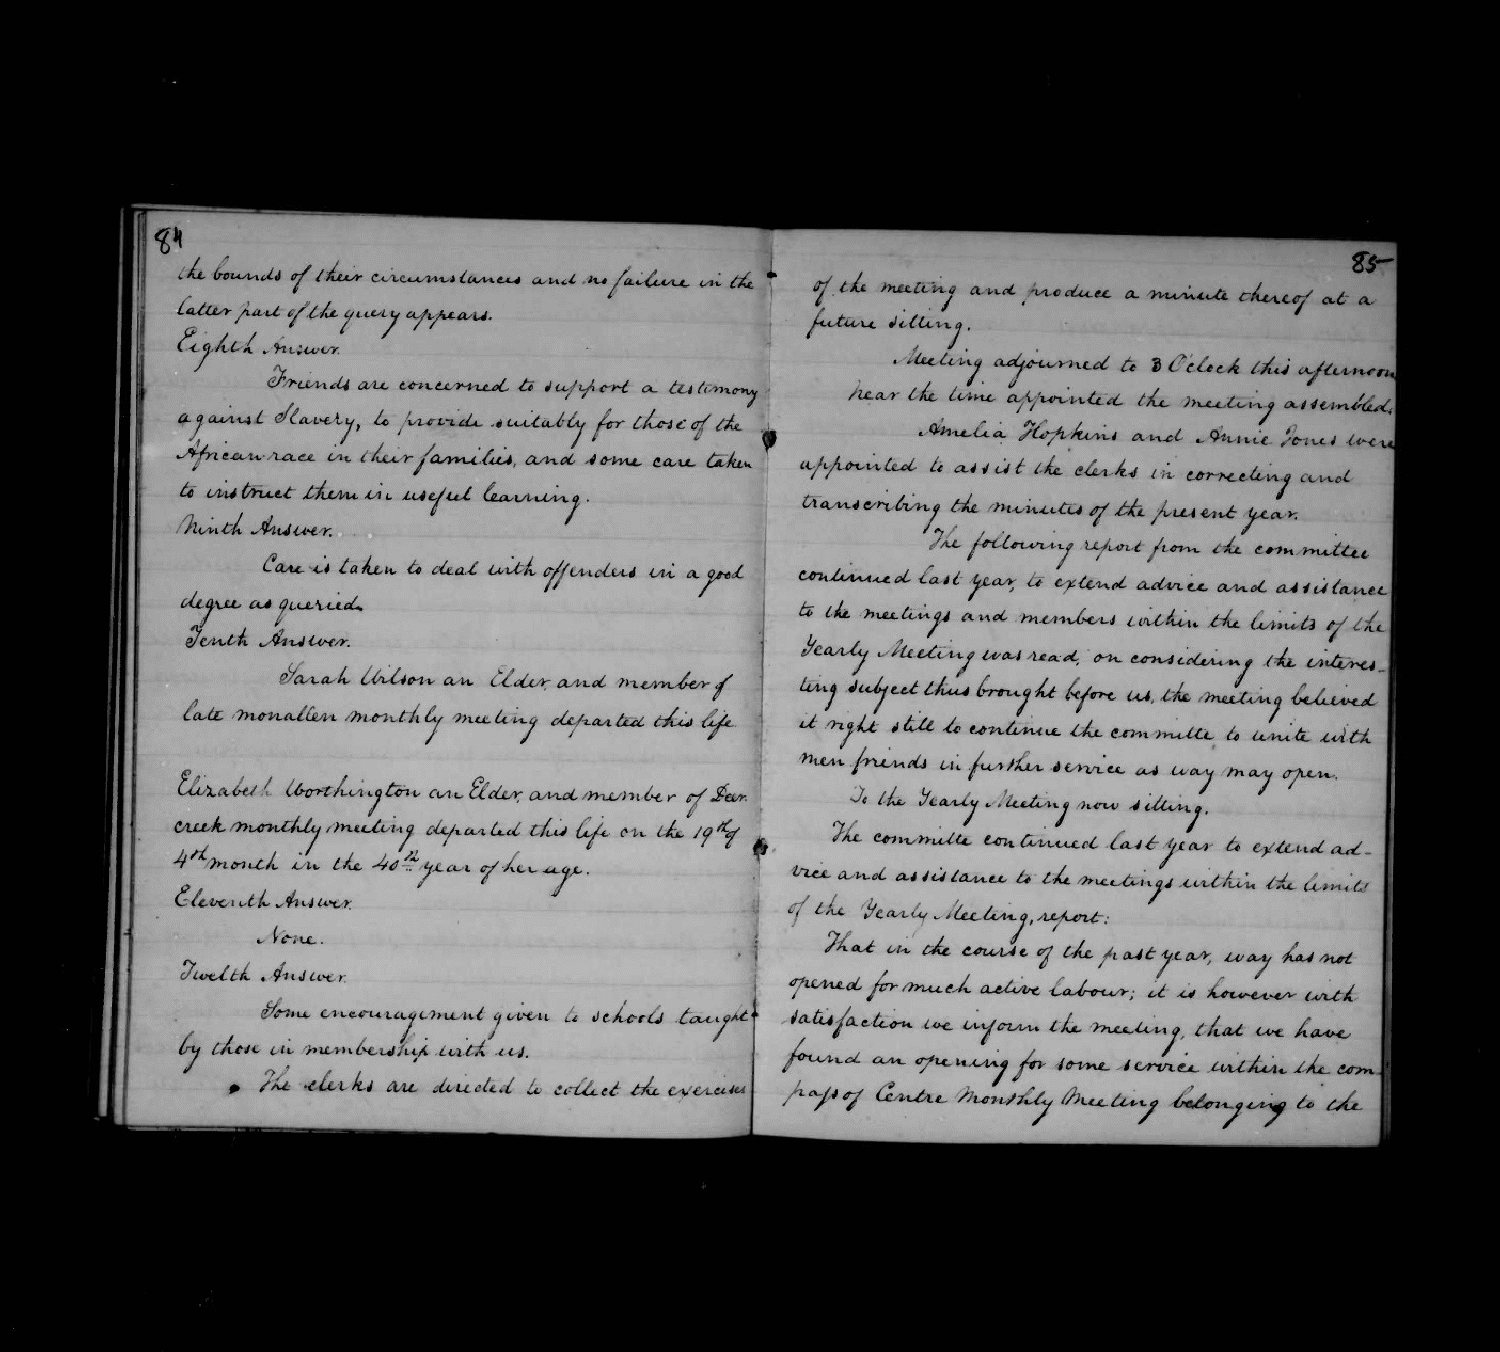 84
the bounds of their circumstances and no failure in the
latter part of the query appears.
Eighth Answer.
Friends are concerned to support a testimony
against Slavery, to provide suitably for those of the
African race in their families, and some care taken
to instruct them in useful learning.
Ninth Answer.
Care is taken to deal with offenders in a good
degree as queried.
Tenth Answer.
Sarah Wilson an Elder, and member of
late monallen monthly meeting departed this life
Elizabeth Worthington an Elder, and member of Deer
creek monthly meeting departed this life on the 19th of
4th month in the 40th year of her age.
Eleventh Answer.
None.
Twelth Answer.
Some encouragement given to schools taught
by those in membership with us.
The clerks are directed to collect the exercises
85
of the meeting and produce a minute thereof at a
future sitting.
Meeting adjourned to 3 O'clock this afternoon
Near the time appointed the meeting assembled.
Amelia Hopkins and Annie Jones were
appointed to assist the clerks in correcting and
transcribing the minutes of the present year.
The following report from the committee
continued last year, to extend advice and assistance
to the meetings and members within the limits of the
Yearly Meeting was read, on considering the interes-
ting subject thus brought before us, the meeting believed
it right still to continue the committe to unite with
men friends in further service as way may open.
To the Yearly Meeting now sitting.
The committe continued last year to extend ad-
vice and assistance to the meetings within the limits
of the Yearly Meeting, report:
That in the course of the past year, way has not
opened for much active labour; it is however with
satisfaction we inform the meeting, that we have
found an opening for some service within the com
pass of Centre Monthly Meeting belonging to the